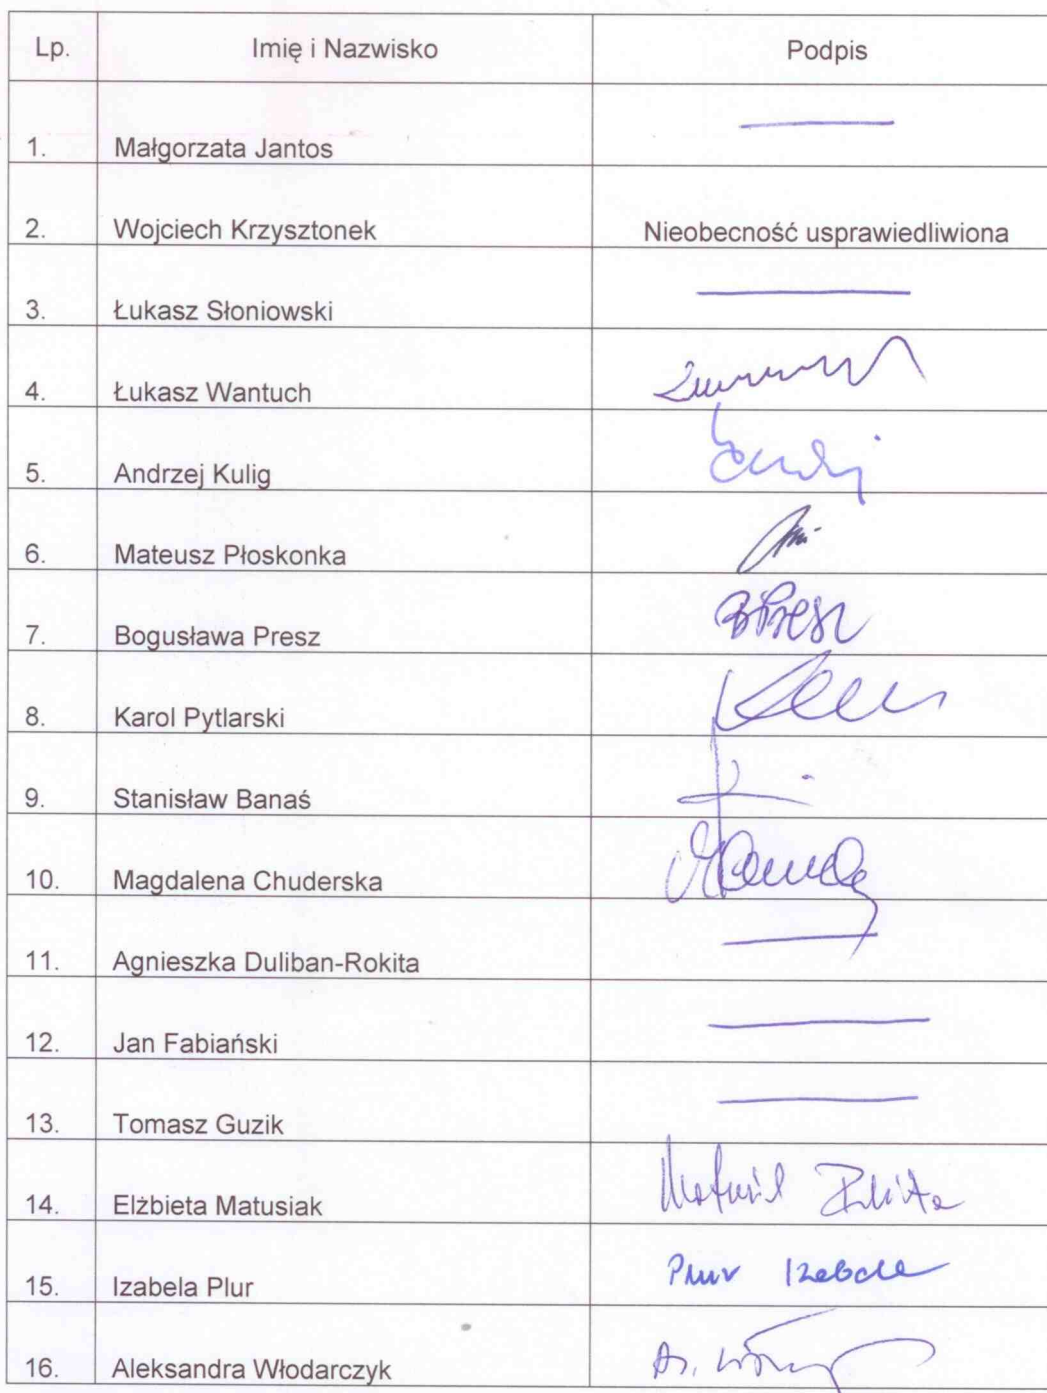 Lp. Imię i Nazwisko Podpis
1. Małgorzata Jantos
2. Wojciech Krzysztonek Nieobecność usprawiedliwiona
3. Łukasz Słoniowski
4. Łukasz Wantuch
5. Andrzej Kulig
6. Mateusz Płoskonka
7. Bogusława Presz BPresz
8. Karol Pytlarski
9. Stanisław Banaś
10. Magdalena Chuderska
11. Agnieszka Duliban-Rokita
12. Jan Fabiański
13. Tomasz Guzik
14. Elżbieta Matusiak
15. Izabela Plur Plur Izabela
16. Aleksandra Włodarczyk